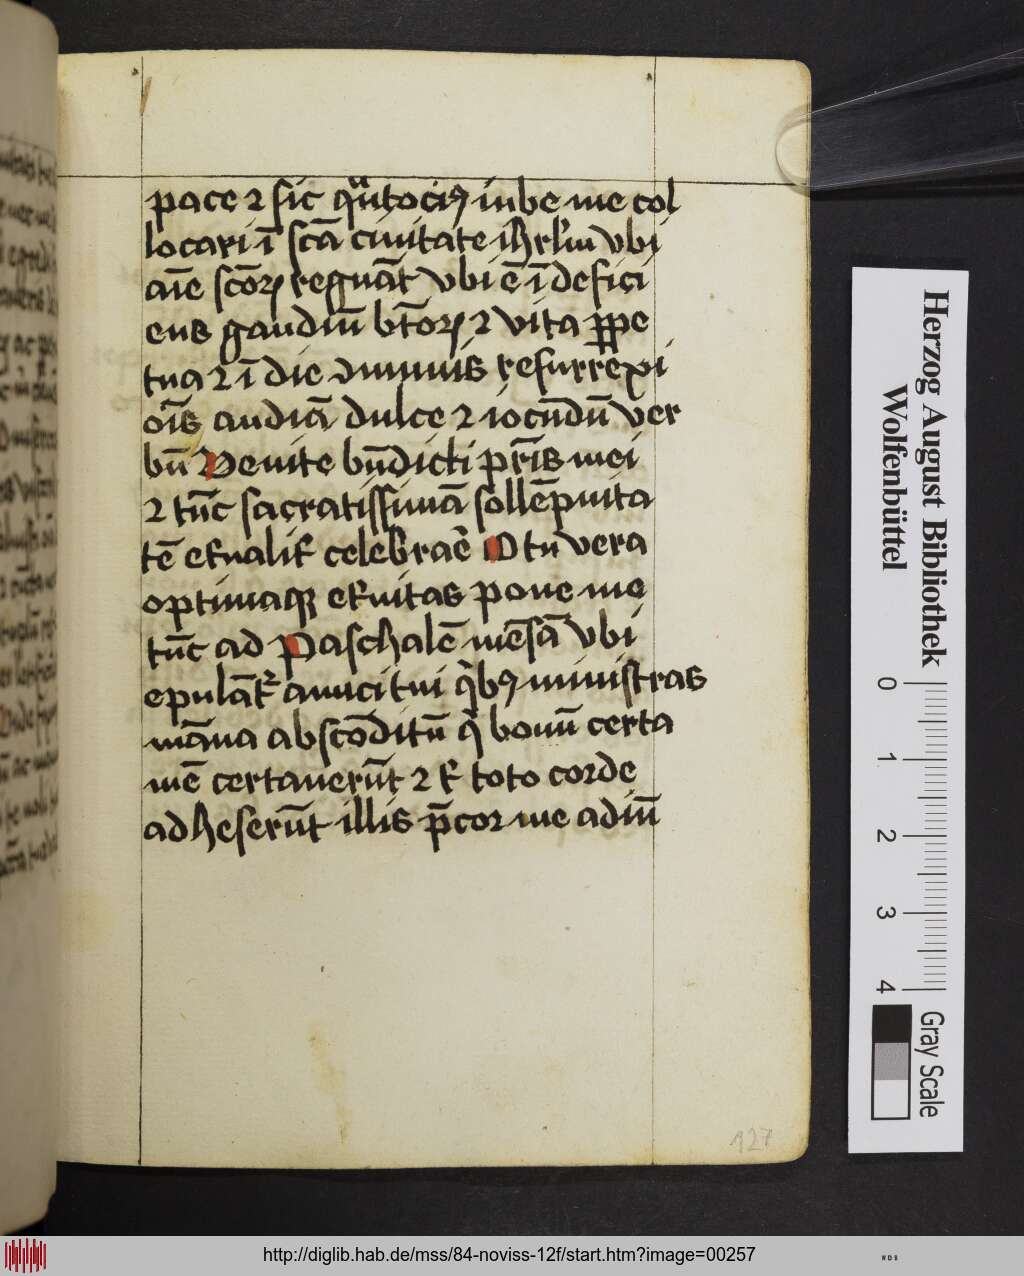 pace ⁊ sic qͣntociꝰ iube me col
locari ī scā ciuitate ihrl̄m vbi
aīe scōꝝ regnāt vbi ē īdefici
ens gaudiū btōꝝ ⁊ vita ꝑpe
tua ⁊ ī die resurrexi
oīs audiā dulce ⁊ iocūdū ver
bū Venite bn̄dicti pr̄is mei
⁊ tūc sacratissimā sollēpnita
tē et̕nalit̕ celebrar̄e O tu vera
optimaqꝫ et̕nitas pone me
tūc ad Paschalē mēsā vbi
epulāt̕ amici tui qͥbꝰ ministras
māna abscōditū qͥ bonū certa
mē certauerūt ⁊ t̕ toto corde
adheserūt illis p̄cor me adiū
127
Herzog August Bibliothek
Wolfenbüttel
0 1 2 3 4
Gray Scale
http://diglib.hab.de/mss/84-noviss-12f/start.htm?image=00257